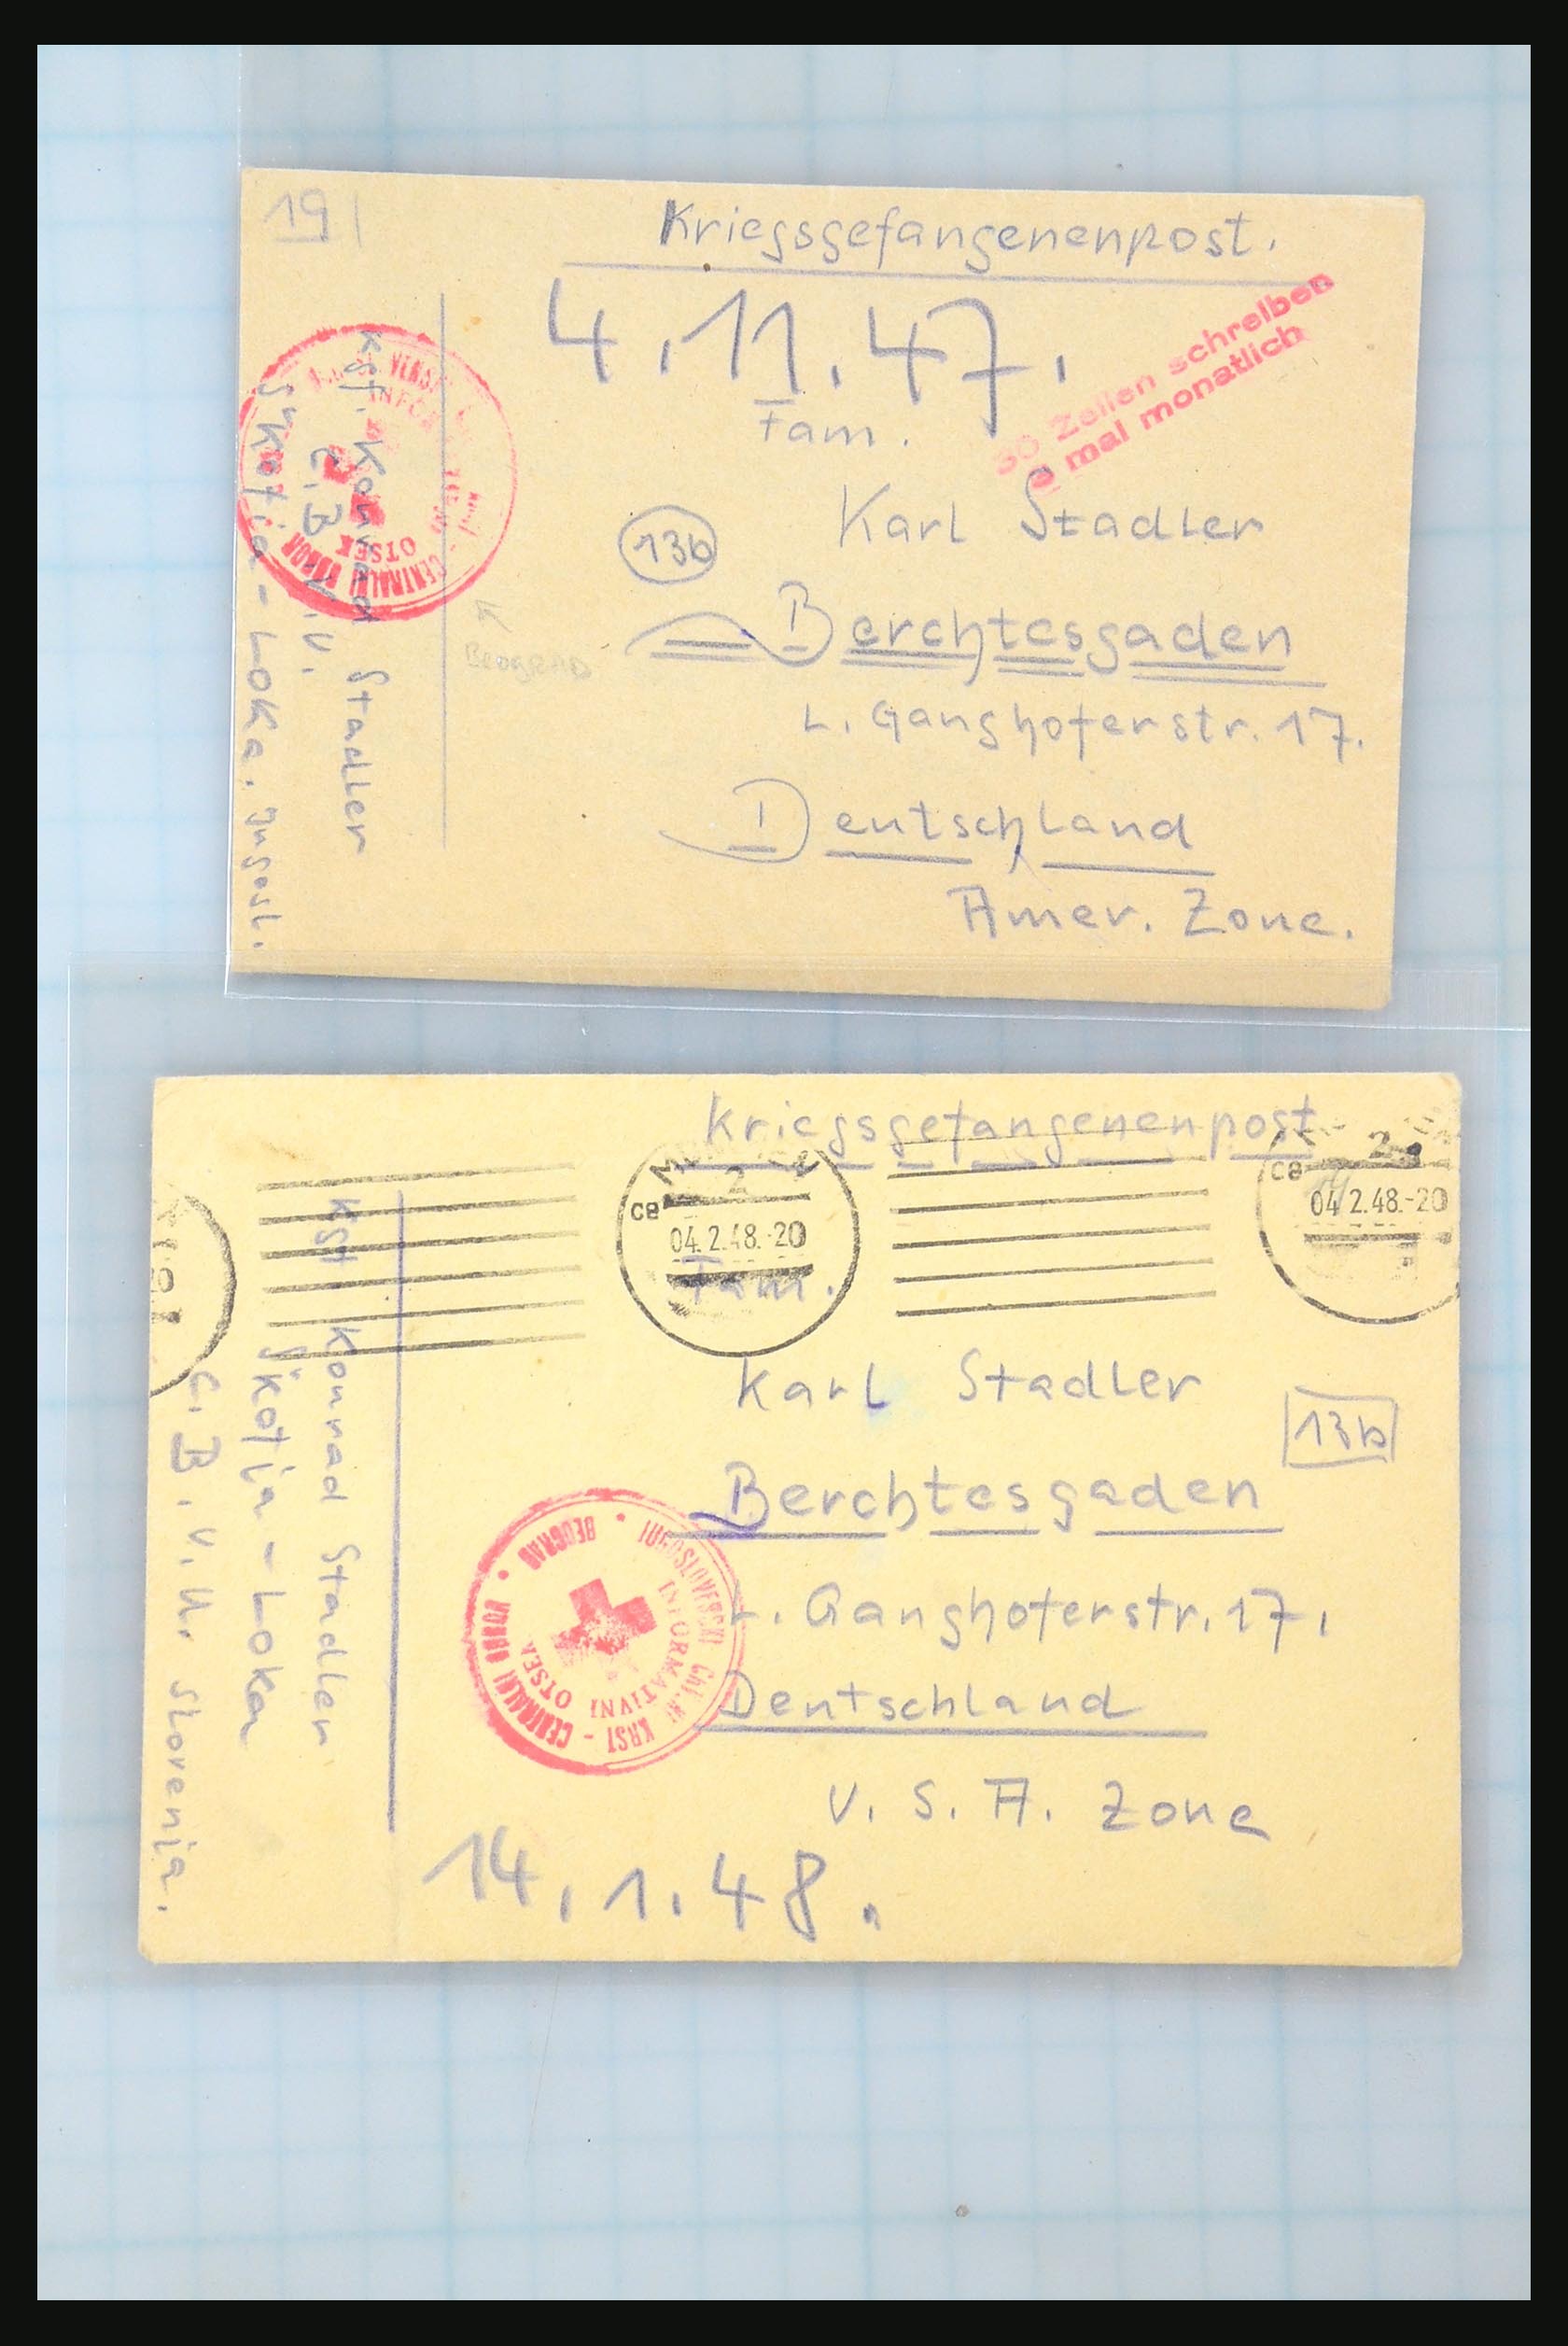 19
Kriegsgefangenenpost.
4.11.47.
30 Zeilen schreiben
2 mal monatlich
Fam.
Karl Stadler
13b
Berchtesgaden
L. Ganghoferstr. 17.
Deutschland
Amer. Zone.
Kgf. Konrad Stadler
C.B.V.U.
Škofja-Loka. Jugosl.
CENTRALNI ODBOR
OTSEK
Beograd
Kriegsgefangenenpost
2
ce
04.2.48.-20
2
ce
04.2.48.-20
Fam.
Karl Stadler
13b
Berchtesgaden
L. Ganghoferstr. 17.
Deutschland
U.S.A. Zone
14.1.48.
Kgf Konrad Stadler
Škofja-Loka
C.B.V.U. Slovenja.
JUGOSLOVENSKI CRVENI KRST - CENTRALNI ODBOR • BEOGRAD •
INFORMATIVNI OTSEK